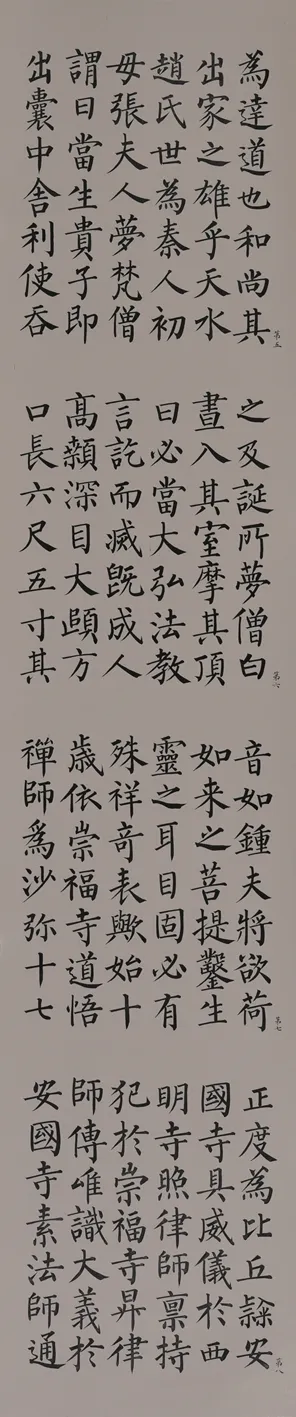 為達道也和尚其
出家之雄乎天水
趙氏世為秦人初
母張夫人夢梵僧
謂曰當生貴子即
出囊中舍利使吞
第五
之及誕所夢僧白
晝入其室摩其頂
曰必當大弘法教
言訖而滅既成人
高顙深目大頤方
口長六尺五寸其
第六
音如鍾夫將欲荷
如来之菩提鑿生
靈之耳目固必有
殊祥奇表歟始十
歲依崇福寺道悟
禪師爲沙弥十七
第七
正度為比丘隸安
國寺具威儀於西
明寺照律師禀持
犯於崇福寺昇律
師傳唯識大義於
安國寺素法師通
第八